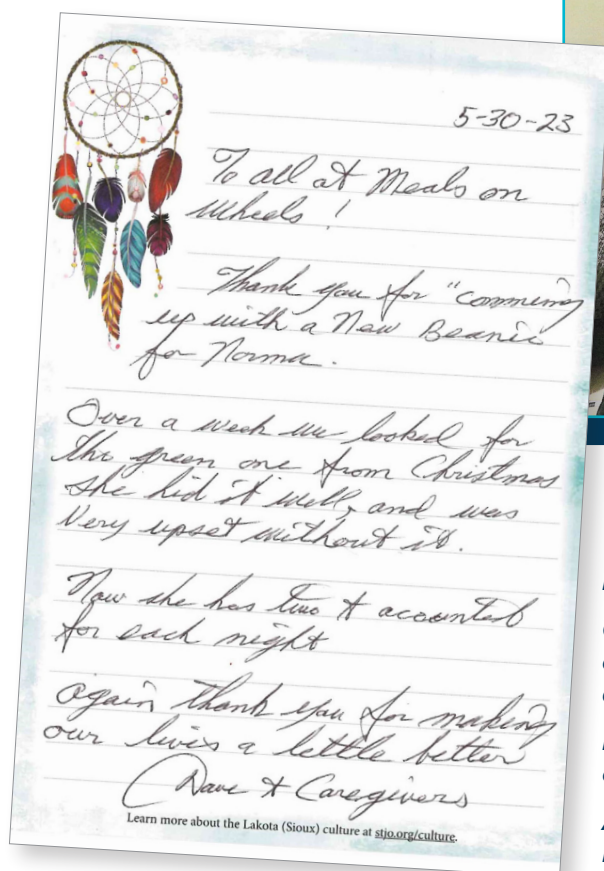 5-30-23
To all at Meals on
Wheels!
Thank you for "comming
up with a New Beanie
for Norma.
Over a week we looked for
the green one from Christmas
she hid it well, and was
Very upset without it.
Now she has two & acounted
for each night
again thank you for making
our lives a little better
Dave & Caregivers
Learn more about the Lakota (Sioux) culture at stjo.org/culture.